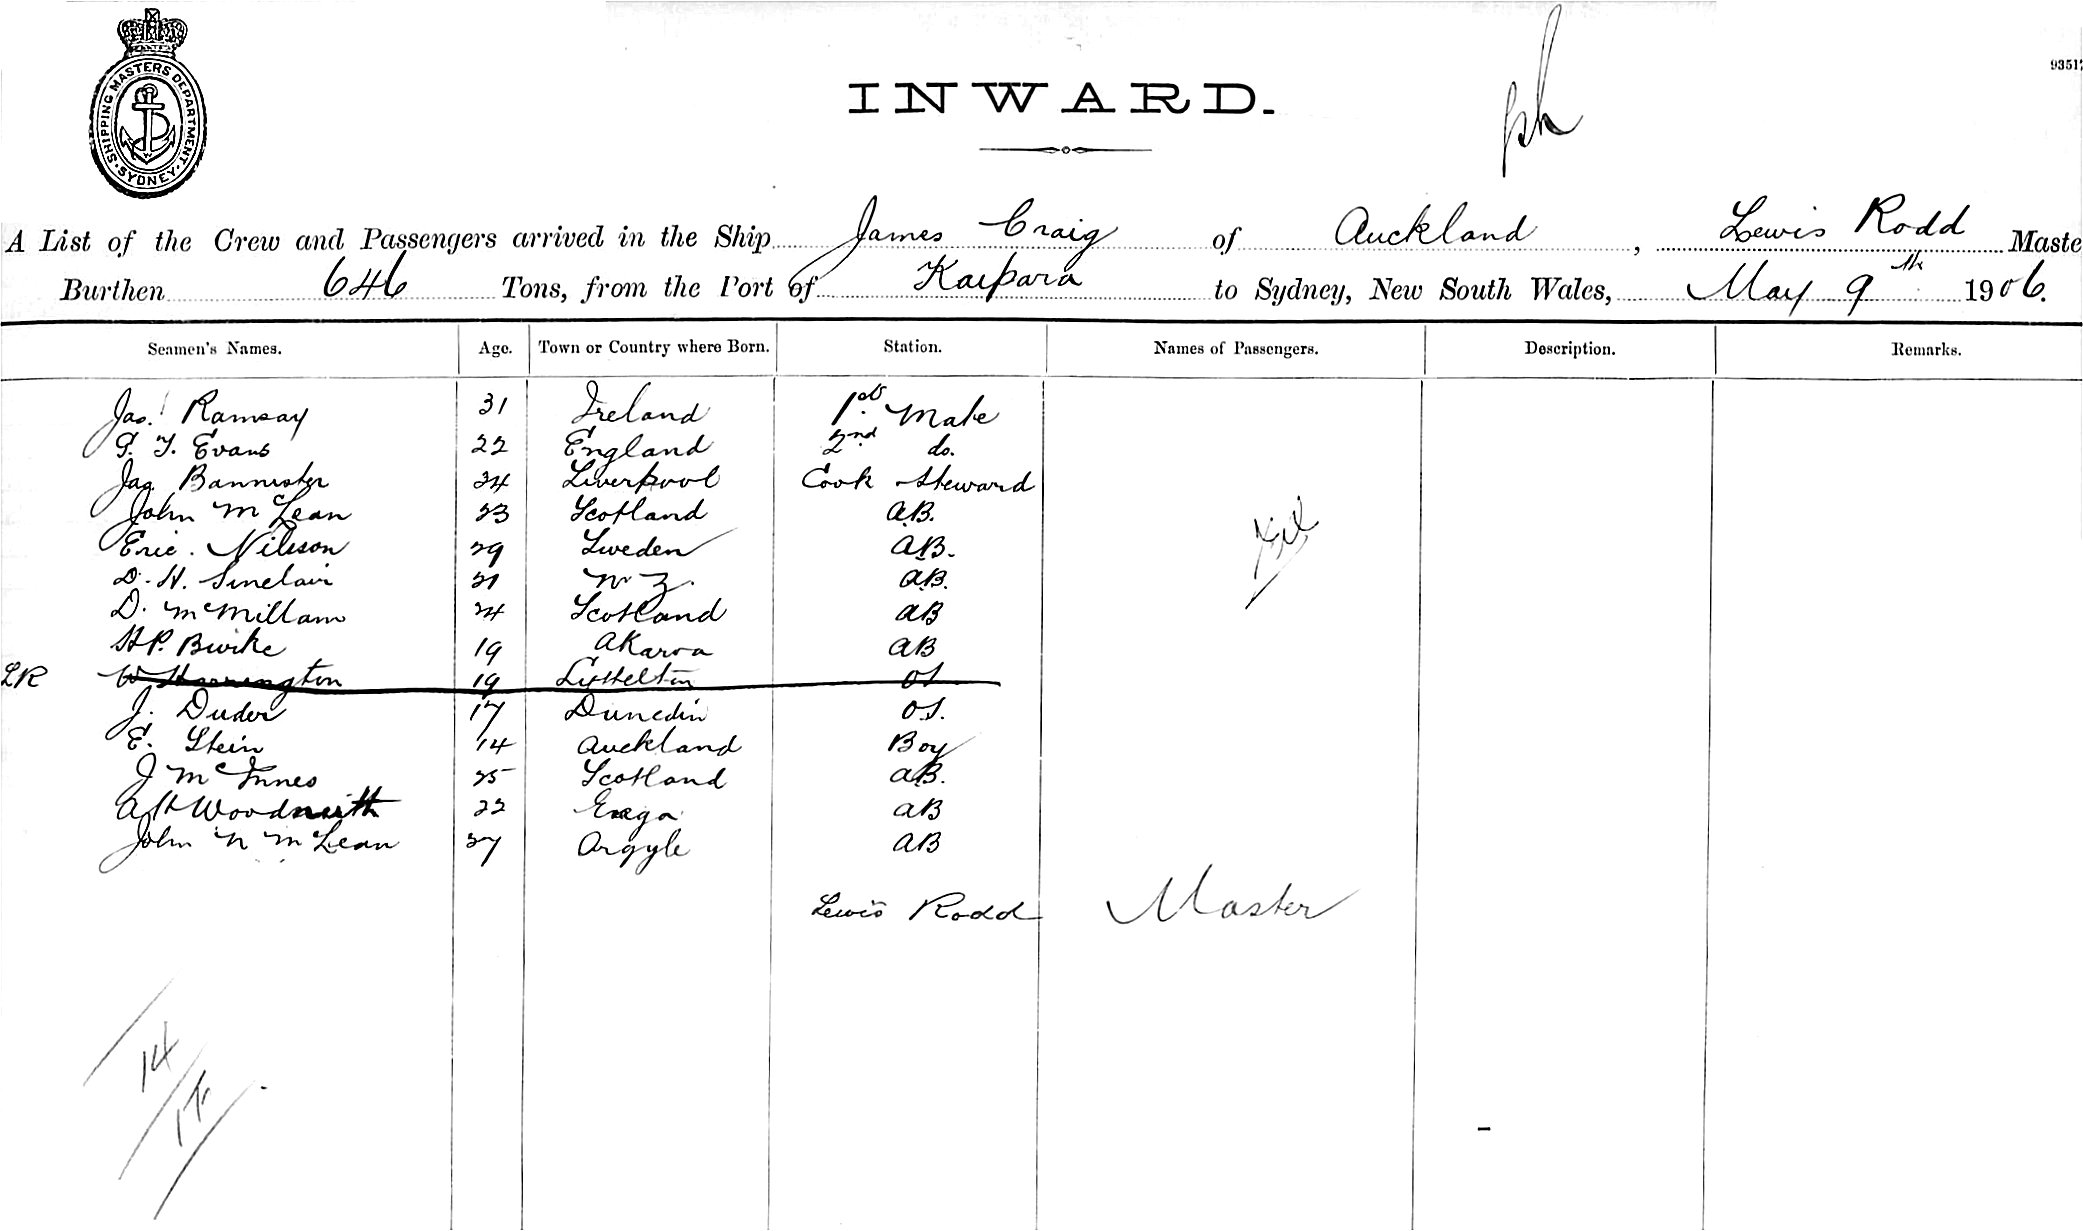 SHIPPING MASTERS DEPARTMENT · SYDNEY ·
93517
INWARD.
A List of the Crew and Passengers arrived in the Ship James Craig of Auckland, Lewis Rodd Maste
Burthen 646 Tons, from the Port of Kaipara to Sydney, New South Wales, May 9th 1906.
Seamen's Names. Age. Town or Country where Born. Station. Names of Passengers. Description. Remarks.
Jas. Ramsay 31 Ireland 1st Mate
22 England 2nd do.
Jas Bannister 34 Liverpool Cook Steward
John McLean 23 Scotland A.B.
Eric. Nilsson 29 Sweden A.B.
D. H. Sinclair 21 N Z. A.B.
D. McMillam 24 Scotland AB
H.P. Burke 19 Akaroa AB
LR W Harrington 19 Lyttelton OS
J. Duder 17 Dunedin O.S.
E. Stein 14 Auckland Boy
J McInnes 25 Scotland A.B.
22 AB
John N McLean 27 Argyle AB
Lewis Rodd Master
14